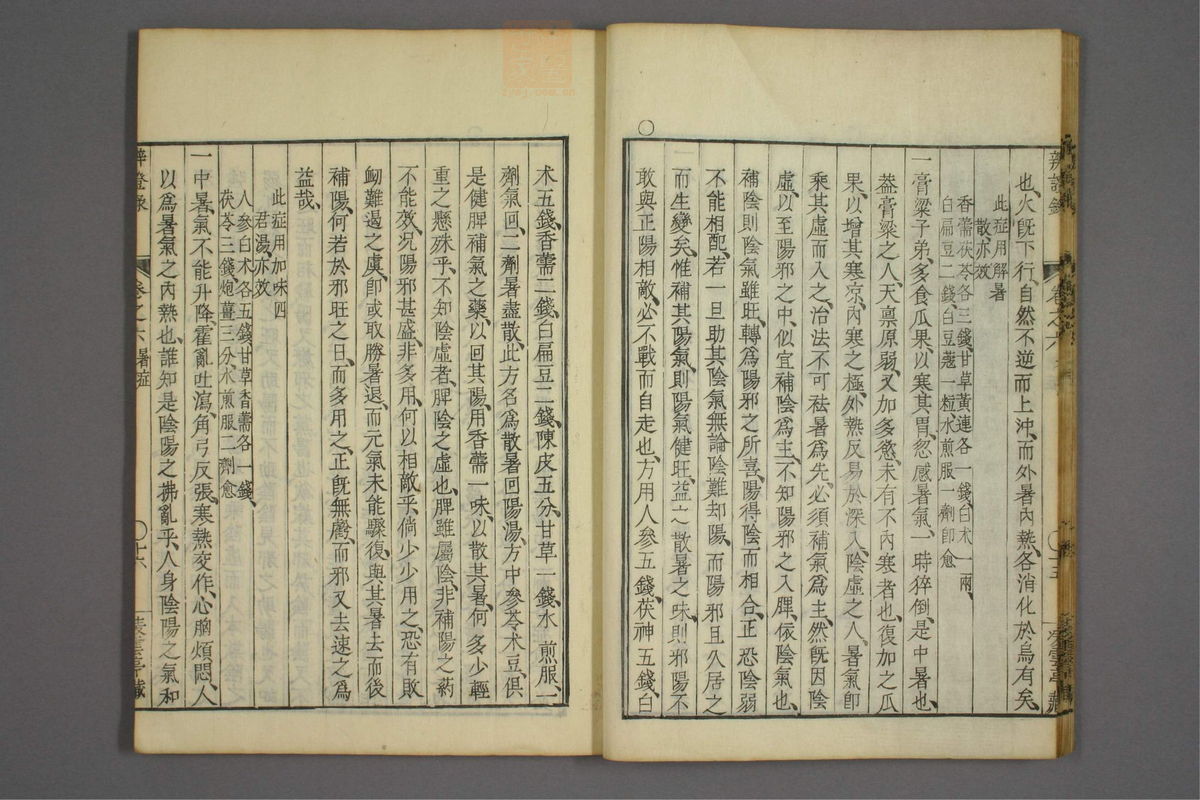 也、火旣下行、自然不逆而上沖、而外暑內熱、各消化於烏有矣、
此症用解暑
散亦效
香薷茯苓各三錢、甘草黃連各一錢、白朮一兩、
白扁豆二錢、白豆蔻一粒、水煎服一劑卽愈
一膏粱子弟、多食瓜果、以寒其胃、忽感暑氣、一時猝倒、是中暑也、
蓋膏粱之人、天禀原弱、又加多慾、未有不內寒者也、復加之瓜
果、以增其寒凉、內寒之極、外熱反易於深入、陰虛之人、暑氣卽
乘其虛而入之、治法不可祛暑爲先、必須補氣爲主、然旣因陰
虛、以至陽邪之中、似宜補陰爲主、不知陽邪之入脾、依陰氣也、
補陰則陰氣雖旺、轉爲陽邪之所喜、陽得陰而相合、正恐陰弱
不能相配、若一旦助其陰氣、無論陰難却陽、而陽邪且久居之
而生變矣、惟補其陽氣、則陽氣健旺、益之散暑之味、則邪陽不
敢與正陽相敵、必不戰而自走也、方用人參五錢、茯神五錢、白
朮五錢、香薷二錢、白扁豆二錢、陳皮五分、甘草一錢、水煎服、一
劑氣回、二劑暑盡散、此方名爲散暑回陽湯、方中參苓朮豆、俱
是健脾補氣之藥、以回其陽、用香薷一味、以散其暑、何多少輕
重之懸殊乎、不知陰虛者、脾陰之虛也、脾雖屬陰、非補陽之藥
不能效、況陽邪甚盛、非多用、何以相敵乎、倘少少用之、恐有敗
衂難遏之虞、卽或取勝暑退、而元氣未能驟復、與其暑去而後
補陽、何若於邪旺之日、而多用之、正旣無虧、而邪又去速之爲
益哉、
此症用加味四
君湯、亦效
人參白朮各五錢、甘草香薷各一錢、
茯苓三錢、炮薑三分、水煎服二劑愈
一中暑氣不能升降、霍亂吐瀉、角弓反張、寒熱交作、心胸煩悶、人
以爲暑氣之內熱也、誰知是陰陽之拂亂乎、人身陰陽之氣和
辨證錄
卷之六
暑症